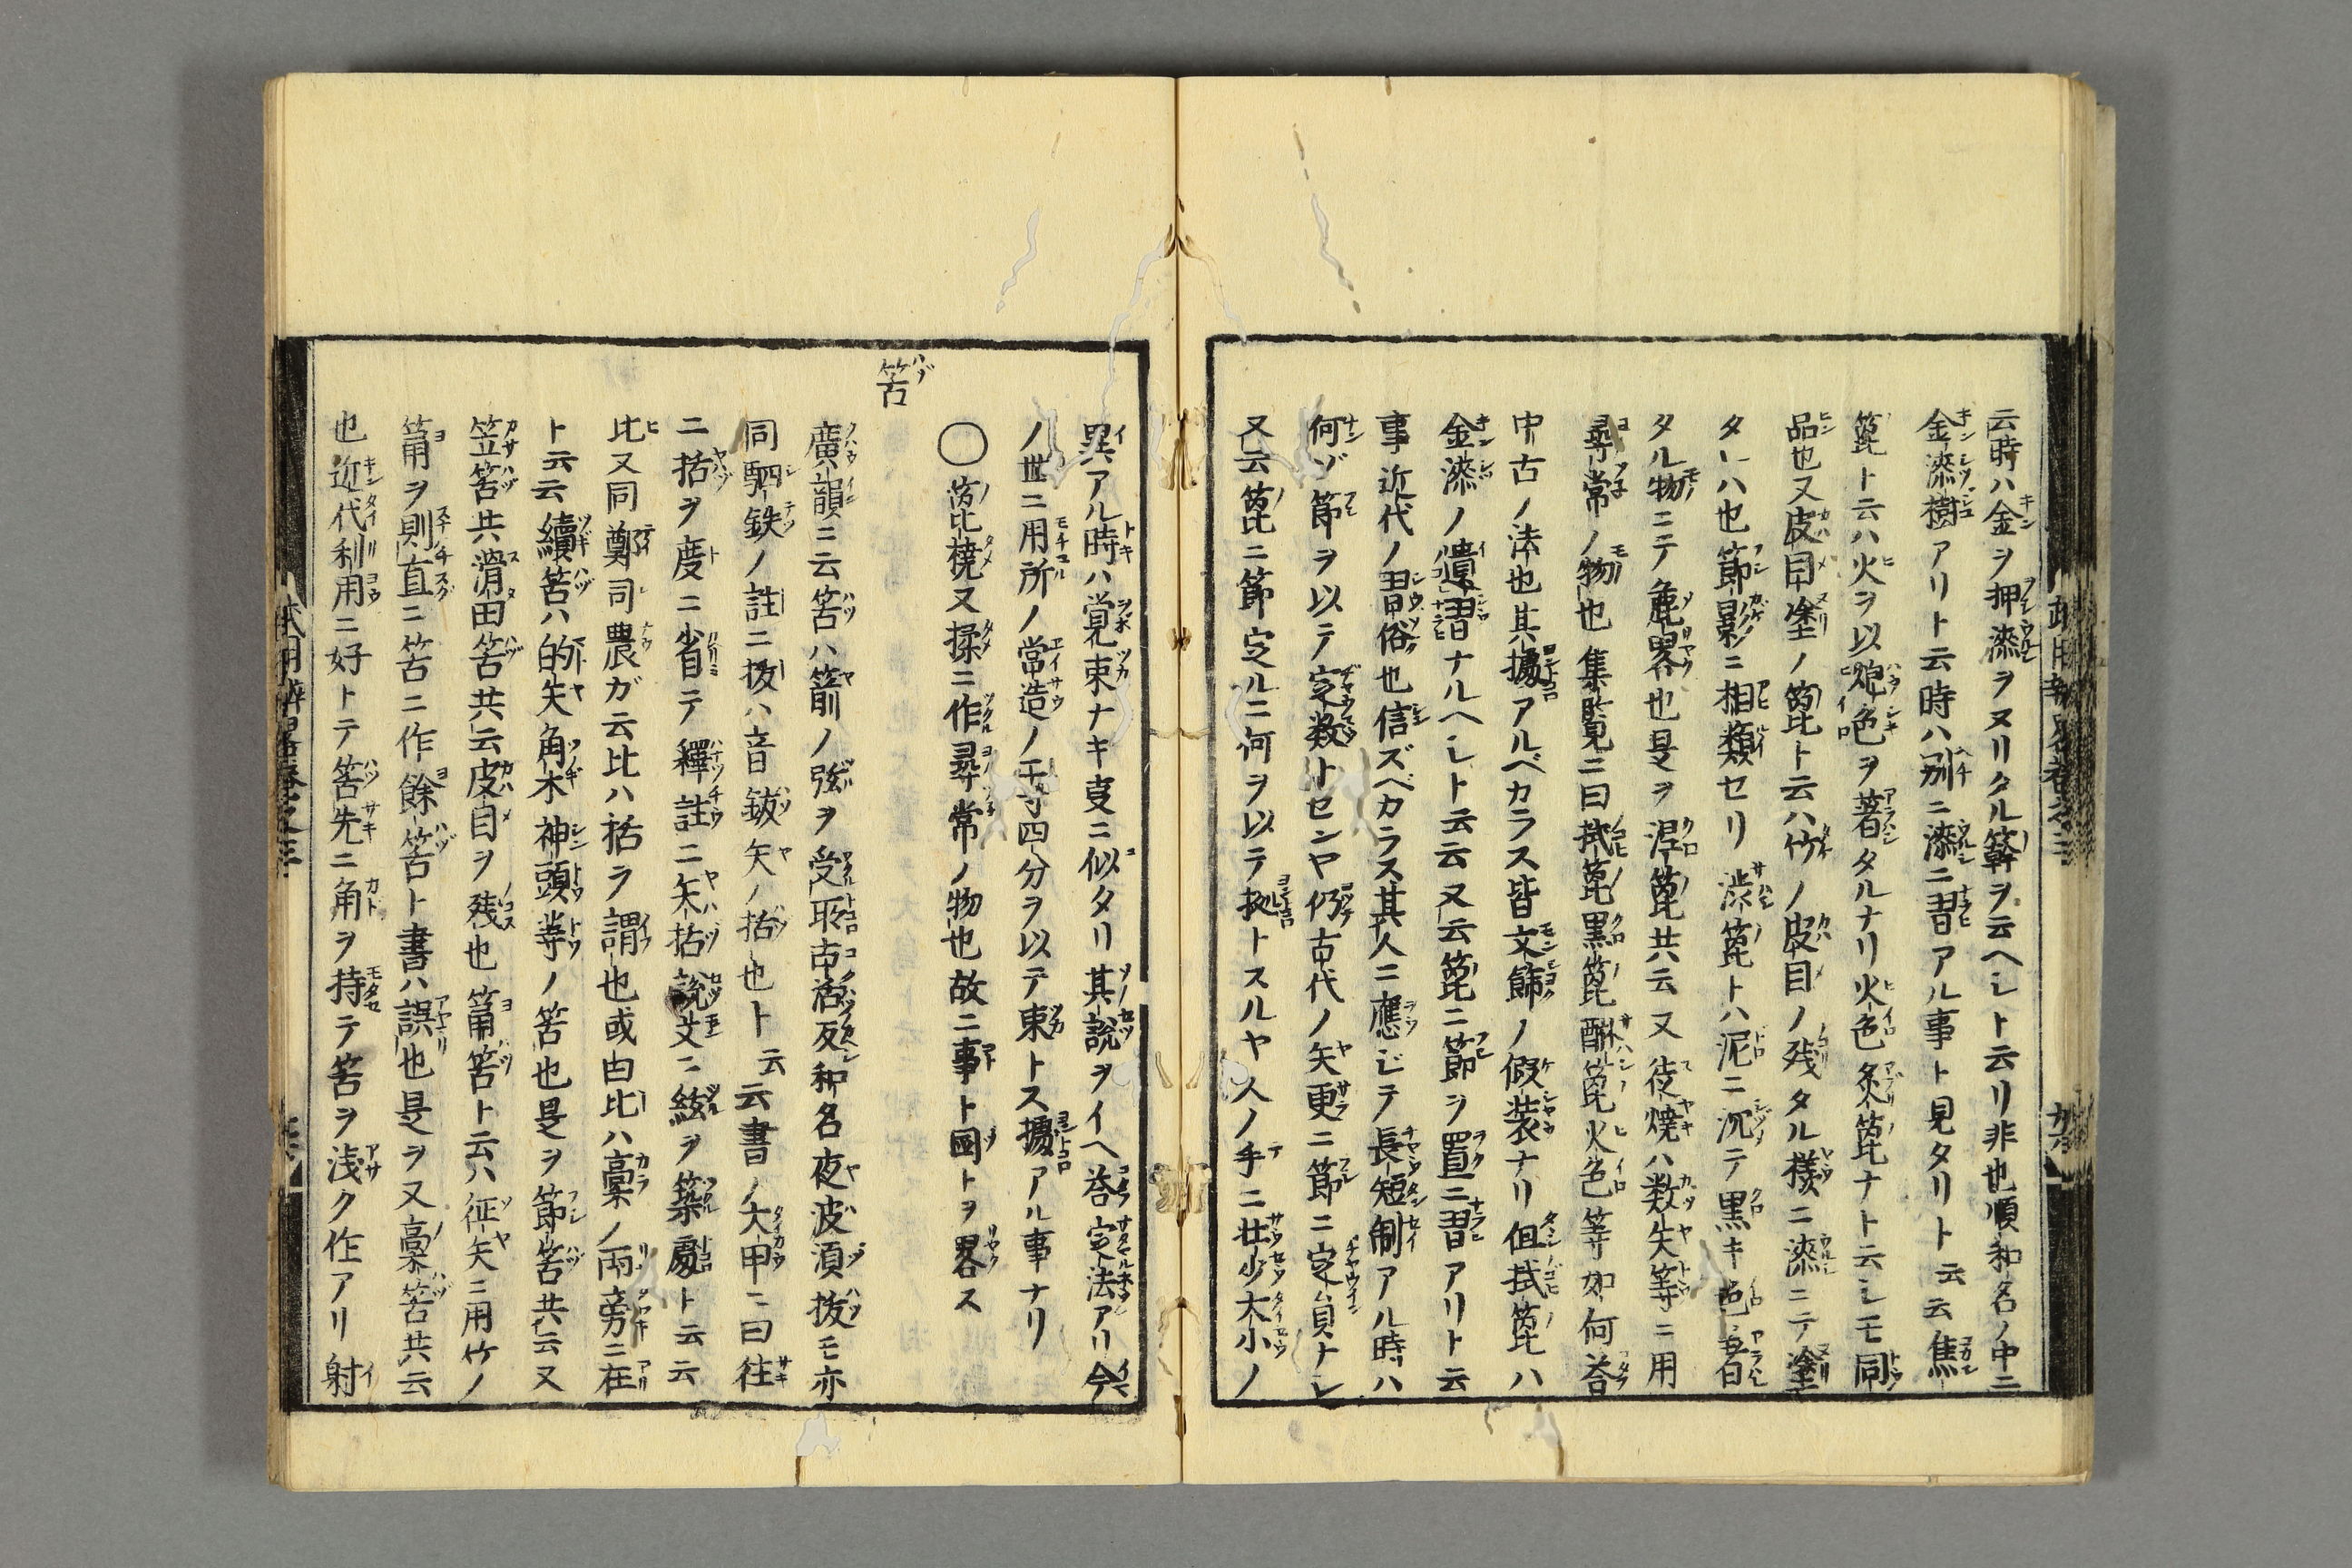 云時ハ金ヲ押漆ヲヌリタル簳ヲ云ヘシト云リ非也順和名ノ中ニ
金漆樹アリト云時ハ別ニ漆ニ習アル事ト見タリト云云焦
箆ト云ハ火ヲ以炮色ヲ著タルナリ火色炙箆ナト云シモ同
品也又皮目塗ノ箆ト云ハ竹ノ皮目ノ残タル様ニ漆ニテ塗
タルハ也節影ニ相類セリ渋箆トハ泥ニ沉テ黒キ色ヲ著
タル物ニテ麁畧也是ヲ涅箆共云又徒焼ハ数矢等ニ用
尋常ノ物也集覧ニ曰拭箆黒箆醂箆火色等如何答
中古ノ法也其據アルベカラス皆文餝ノ假装ナリ但拭箆ハ
金漆ノ遺習ナルヘシト云云又云箆ニ節ヲ置ニ習アリト云
事近代ノ習俗也信ズベカラス其人ニ應ジテ長短制アル時ハ
何ゾ節ヲ以テ定数トセンヤ仍古代ノ矢更ニ節ニ定員ナシ
又云箆ニ節定ルニ何ヲ以テ拠トスルヤ人ノ手ニ壮少大小ノ
異アル時ハ覚束ナキ叓ニ似タリ其説ヲイヘ答定法アリ今
ノ世ニ用所ノ常造ノ二寸四分ヲ以テ束トス據アル事ナリ
〇箆撓又揉ニ作尋常ノ物也故ニ事ト圖トヲ畧ス
筈
廣韻ニ云筈ハ箭ノ弦ヲ受所古活反和名夜波須抜モ亦
同駟鉄ノ註ニ抜ハ音鈸矢ノ括也ト云云書ノ大甲ニ曰往
ニ括ヲ度ニ省テ釋註ニ矢括説文ニ絃ヲ築處ト云云
比又同鄭司農ガ云比ハ括ヲ謂也或由比ハ槀ノ兩旁ニ在
ト云云續筈ハ的矢角木神頭等ノ筈也是ヲ節筈共云又
笠筈共滑田筈共云皮目ヲ残也筩筈ト云ハ征矢ニ用竹ノ
筩ヲ則直ニ筈ニ作餘筈ト書ハ誤也是ヲ又槀筈共云
也近代利用ニ好トテ筈先ニ角ヲ持テ筈ヲ浅ク作アリ射